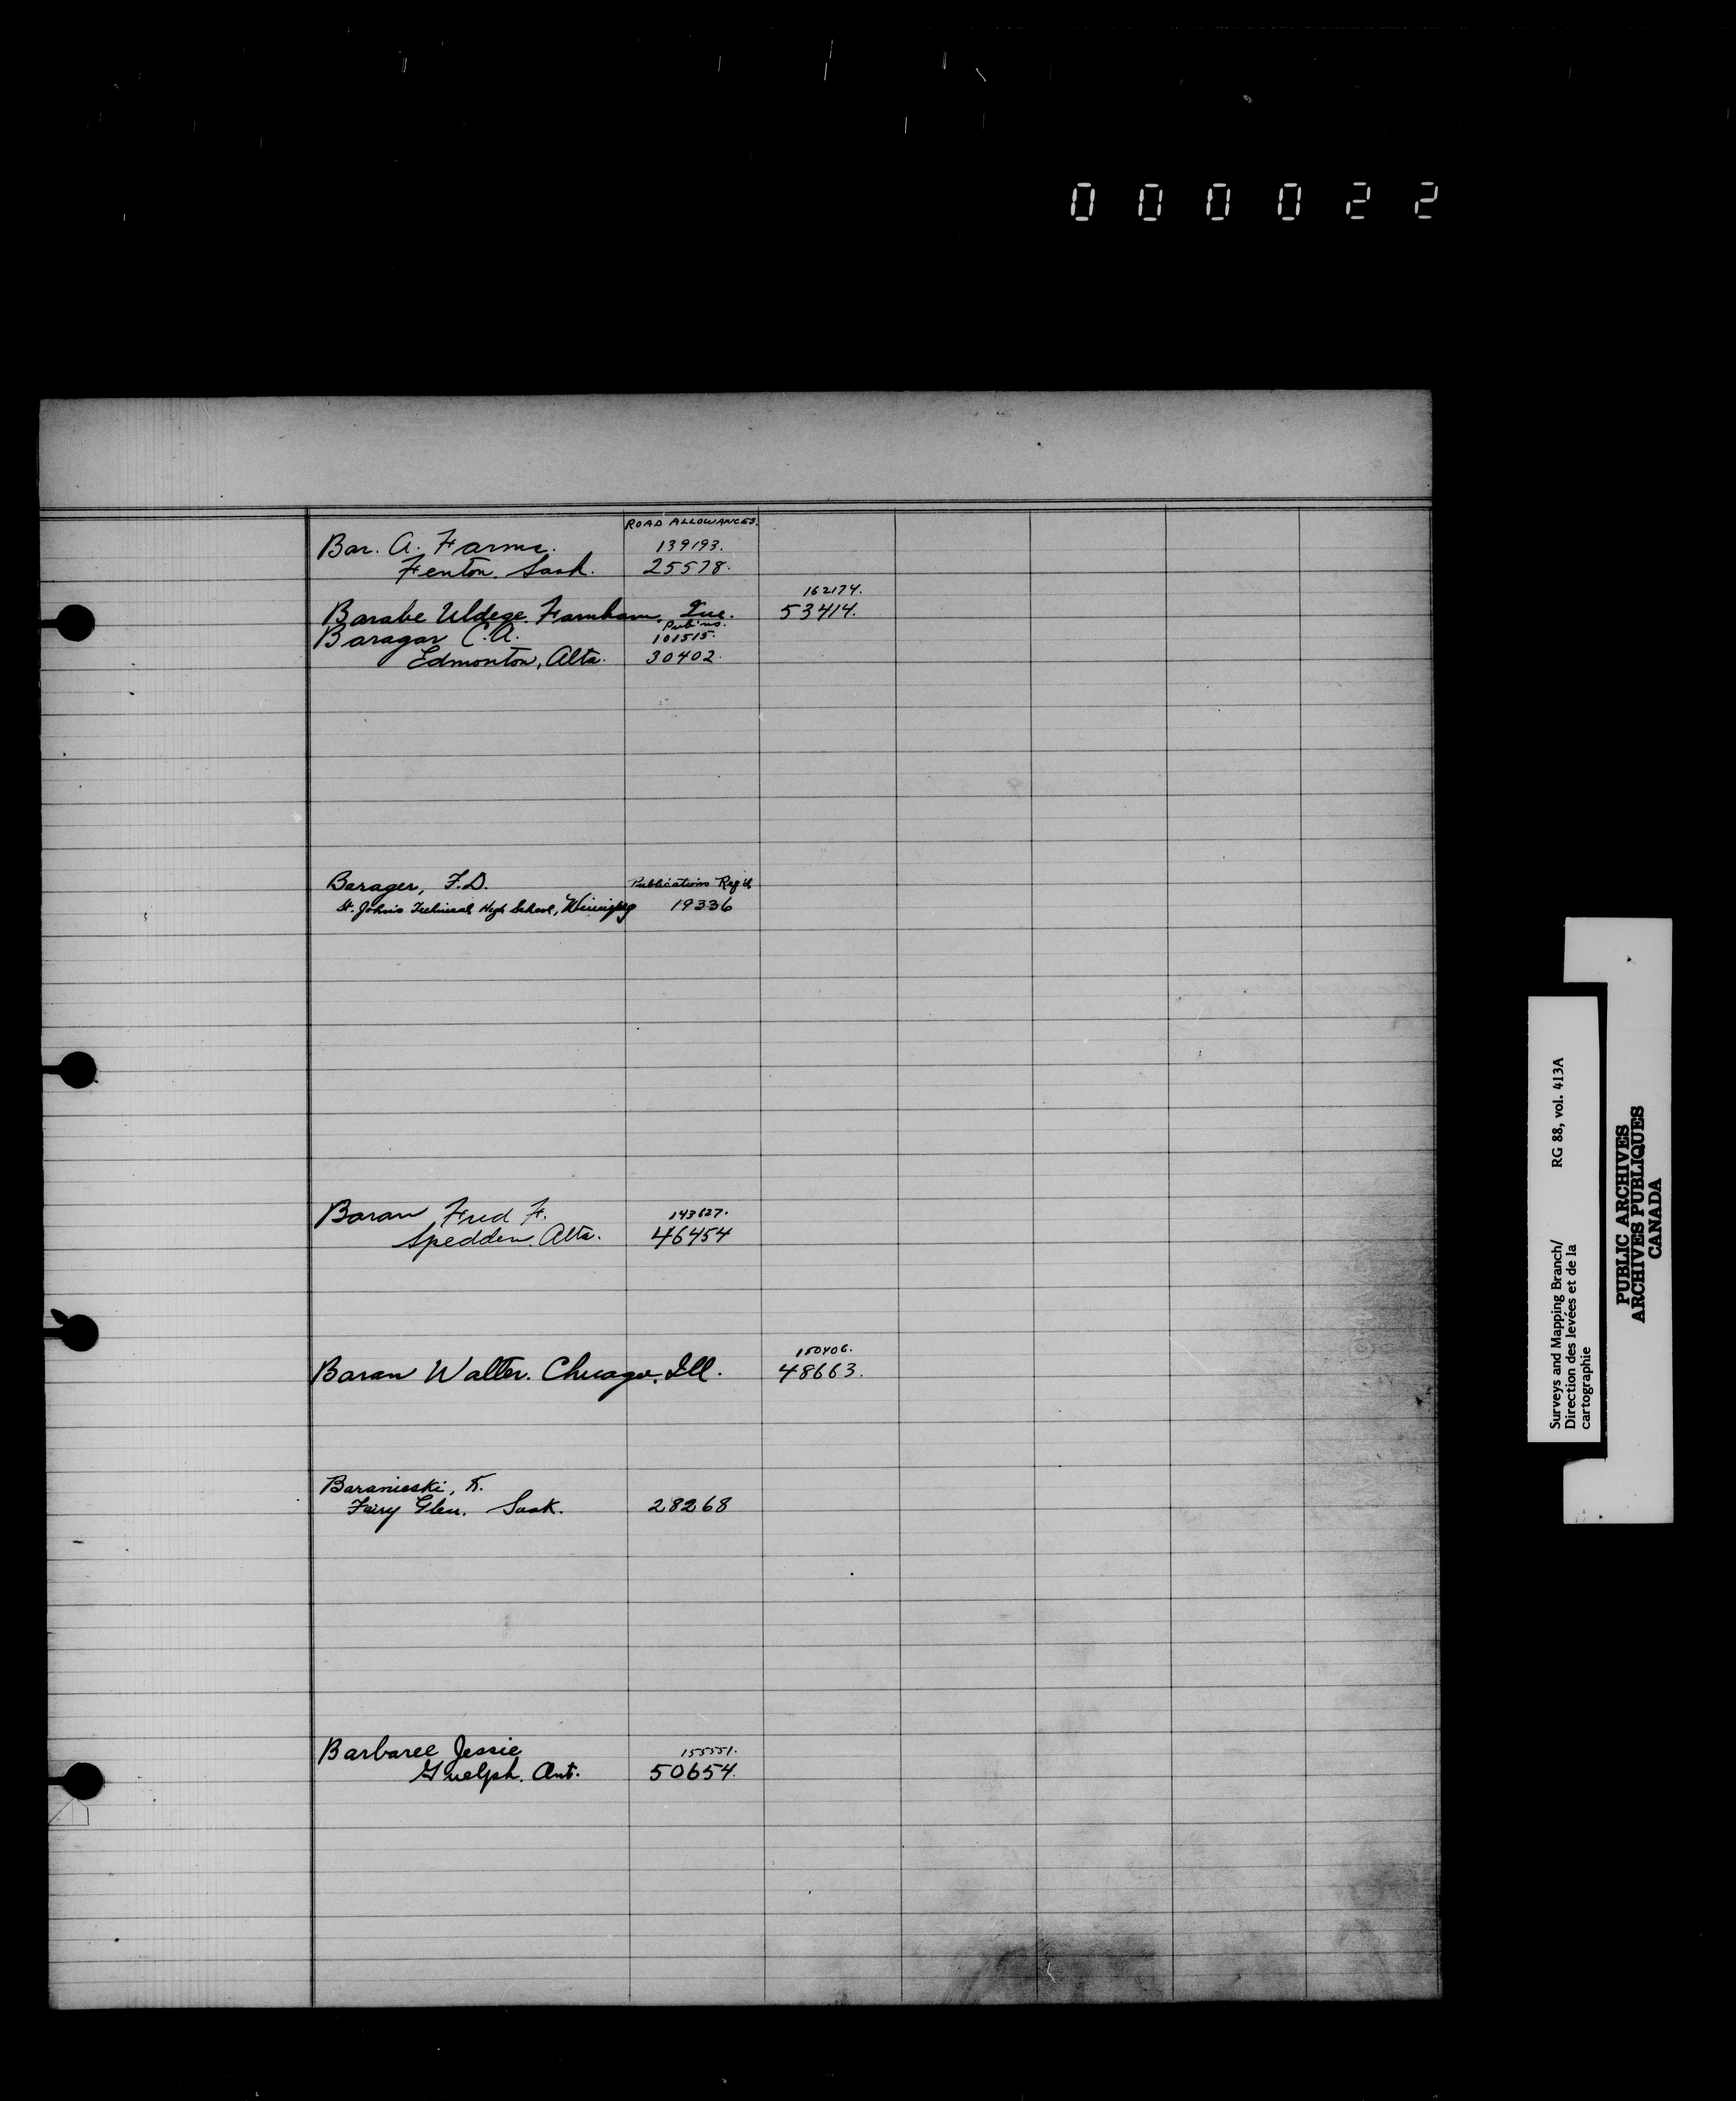 000022
ROAD ALLOWANCES.
Bar. A. Farms. 139193.
Fenton. Sask. 25578.
162174.
Barabe Uldege. Farnham, Que. 53414.
Pub'ns.
Baragar C.A. 101515.
Edmonton, Alta. 30402.
Barager, F.D. Publications Req'd
St. John's Technical High School, Winnipeg 19336
Baran Fred F. 143827.
Spedden. Alta. 46454
150406.
Baran Walter. Chicago. Ill. 48663.
Baranieski, K.
Fairy Glen. Sask. 28268
Barbaree Jessie 155551.
Guelph. Ont. 50654.
Surveys and Mapping Branch/ RG 88, vol. 413A
Direction des levées et de la
cartographie
PUBLIC ARCHIVES
ARCHIVES PUBLIQUES
CANADA